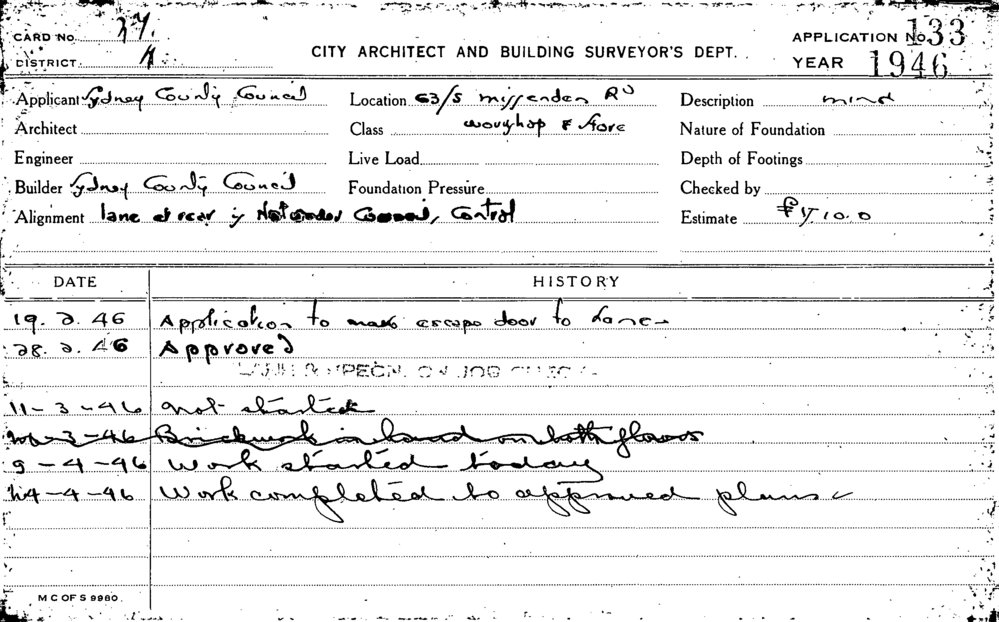 CARD No. 27.
APPLICATION No. 133
DISTRICT. A.
CITY ARCHITECT AND BUILDING SURVEYOR'S DEPT.
YEAR 1946
Applicant Sydney County Council Location 63/5 missenden Rd Description mind
Architect Class workshop & store Nature of Foundation
Engineer Live Load Depth of Footings
Builder Sydney County Council Foundation Pressure Checked by
Alignment lane at rear is Not under Council, Control Estimate £
DATE HISTORY
19. 2. 46 Application to make escape door to Lane
28. 2. 46 Approved
ON JOB
11-3-46 not started
-3-46 Brickwork in hand on both floors
9-4-46 Work started today
24-4-46 Work completed to approved plans
M C OF S 9980.